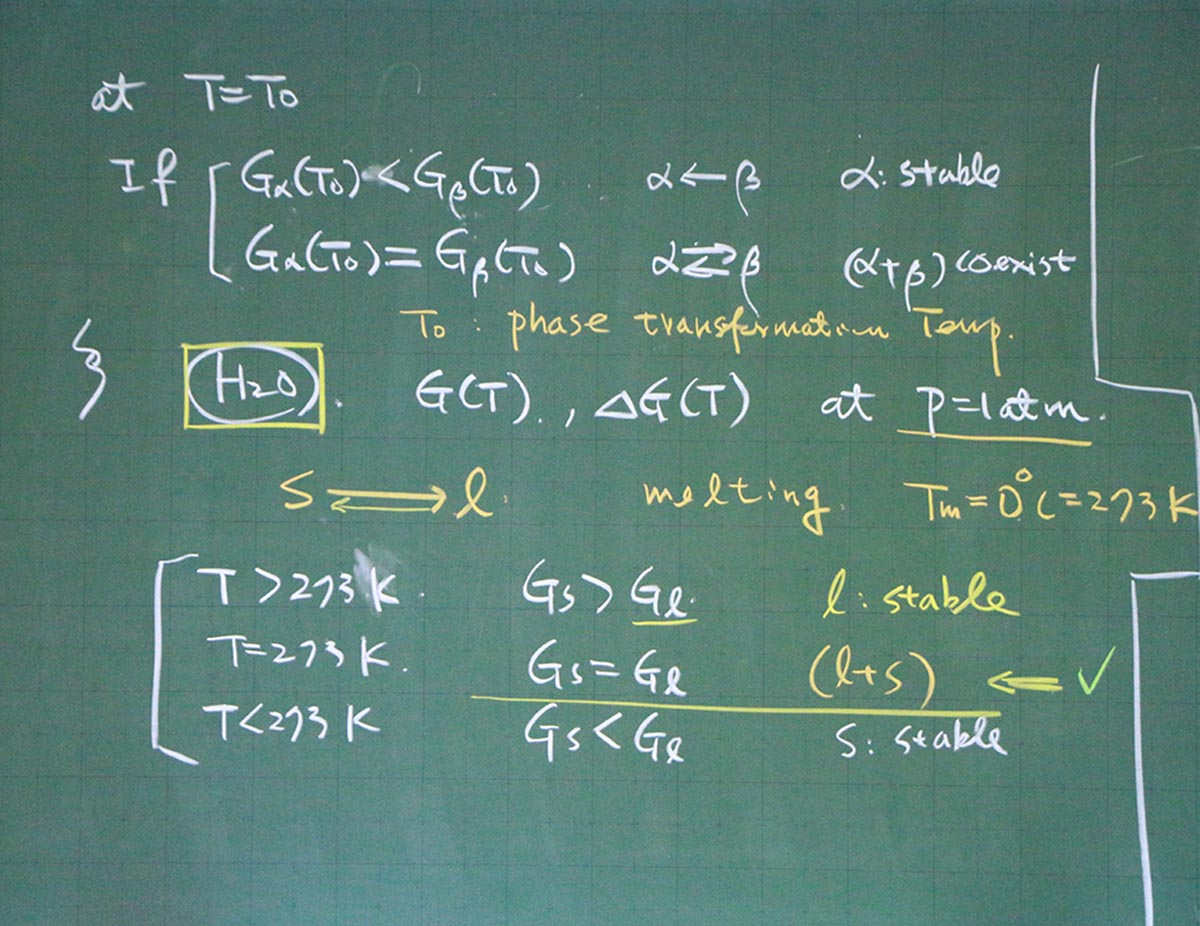 at T=T₀
If [ Gα(T₀)<Gβ(T₀) α←β α: stable
Gα(T₀)=Gβ(T₀) α⇄β (α+β) coexist
T₀: phase transformation Temp.
} H₂O. G(T)., ΔG(T) at P=1atm.
S⇌l. melting. Tm=0°C=273K
[ T>273K. Gs>Gl. l: stable
T=273K. Gs=Gl (l+s) ⇐ ✓
T<273K Gs<Gl S: stable